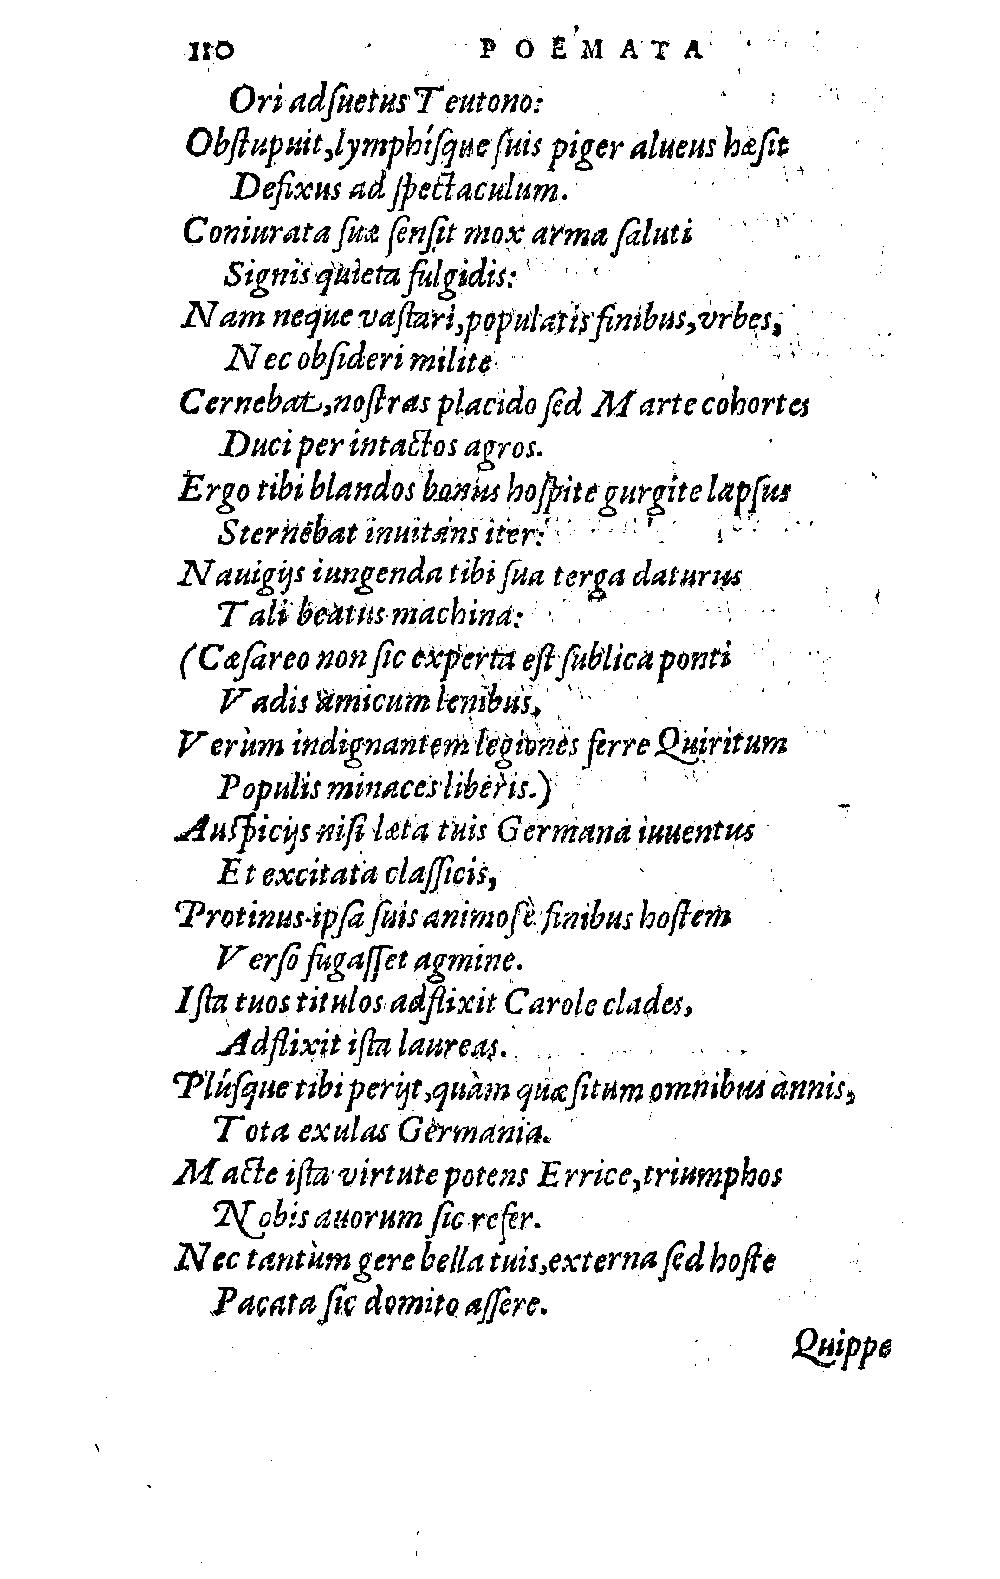 110 POEMATA
Ori adſuetus Teutono:
Obſtupuit, lymphíſque ſuis piger alueus hæſit
Defixus ad ſpectaculum.
Coniurata ſuæ ſenſit mox arma ſaluti
Signis quieta fulgidis:
Nam neque vaſtari, populatis finibus, vrbes,
Nec obſideri milite
Cernebat, noſtras placido ſed Marte cohortes
Duci per intactos agros.
Ergo tibi blandos bonus hoſpite gurgite lapſus
Sternebat inuitans iter:
Nauigijs iungenda tibi ſua terga daturus
Tali beatus machina:
(Cæſareo non ſic experta eſt ſublica ponti
Vadis amicum lenibus,
Verùm indignantem legiones ferre Quiritum
Populis minaces liberis.)
Auſpicijs niſi læta tuis Germana iuuentus
Et excitata claſſicis,
Protinus ipſa ſuis animoſè finibus hoſtem
Verſo fugaſſet agmine.
Iſta tuos titulos adflixit Carole clades,
Adflixit iſta laureas.
Plúſque tibi perijt, quàm quæſitum omnibus annis,
Tota exulas Germania.
Macte iſta virtute potens Errice, triumphos
Nobis auorum ſic refer.
Nec tantùm gere bella tuis, externa ſed hoſte
Pacata ſic domito aſſere.
Quippe